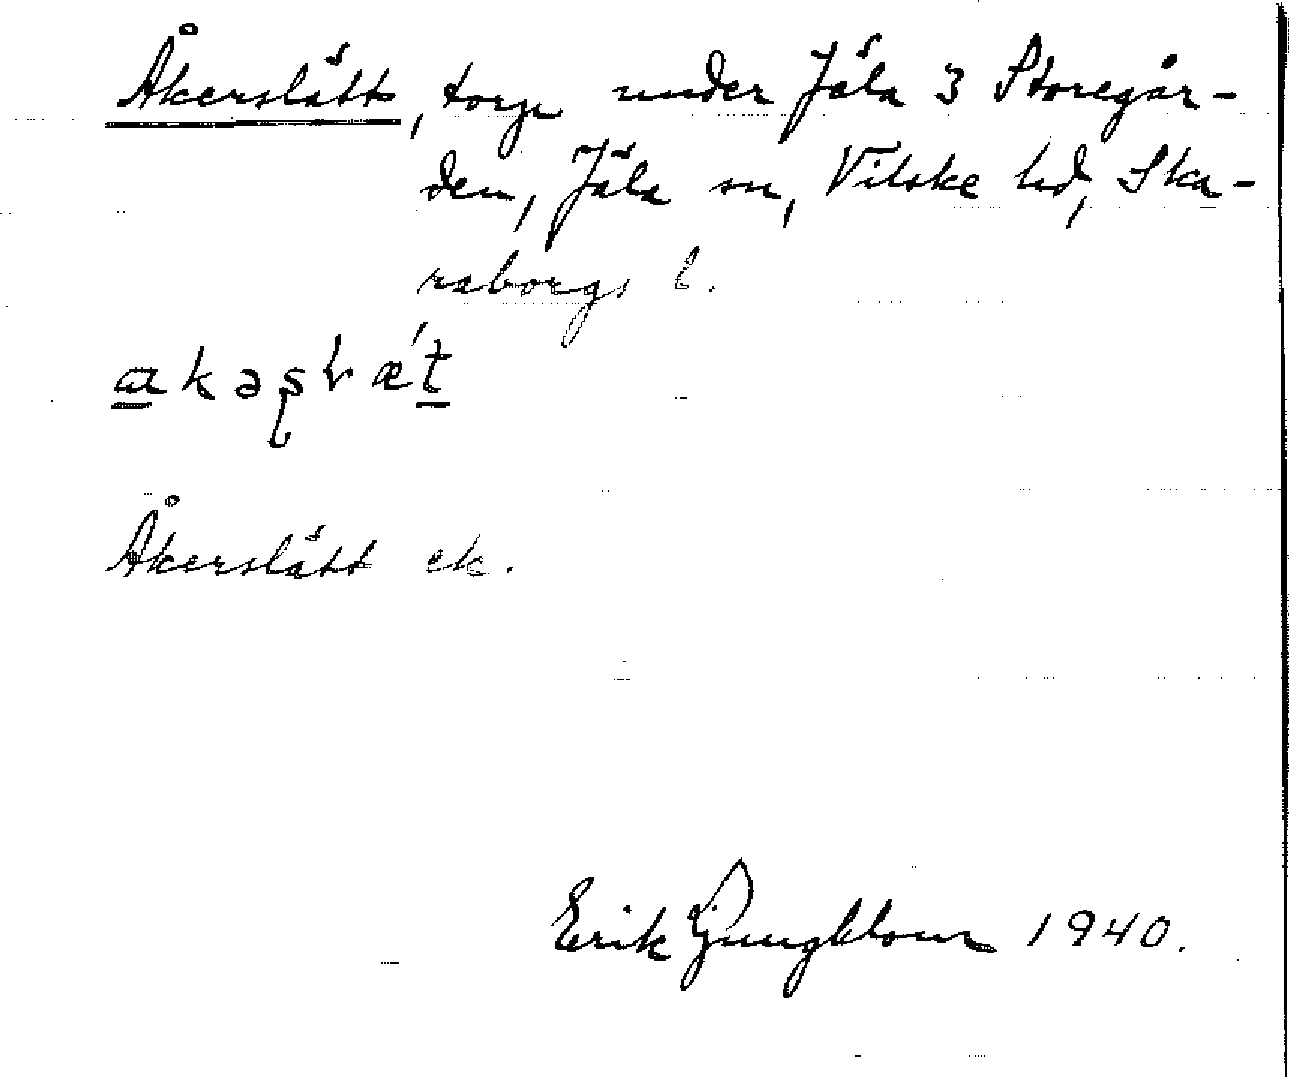 Åkerslätt, torp under Jäla 3 Storegår-
den, Jäla sn, Vilske hd, Ska-
raborgs l.
Åkerslätt ek.
Erik Ljungblom 1940.